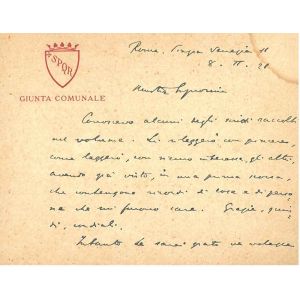 SPQR
GIUNTA COMUNALE
Roma, Piazza Venezia 11
8. II. 28
Conoscevo alcuni degli scritti raccolti
nel volume. Li rileggerò con piacere,
come leggerò, con vivo interesse, gli altri,
avendo già visto, in una prima scorsa,
che contengono ricordi di cose e di perso-
ne che mi furono care. Grazie, quin-
di, cordiali.
Intanto Le sarei grato se volesse